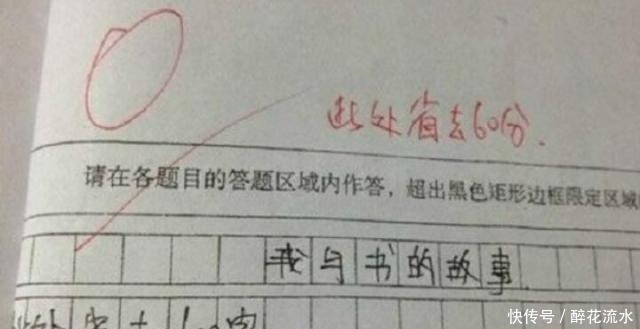 0
此处省去60分.
请在各题目的答题区域内作答，超出黑色矩形边框限定区域
我与书的故事
快传号／醉花流水